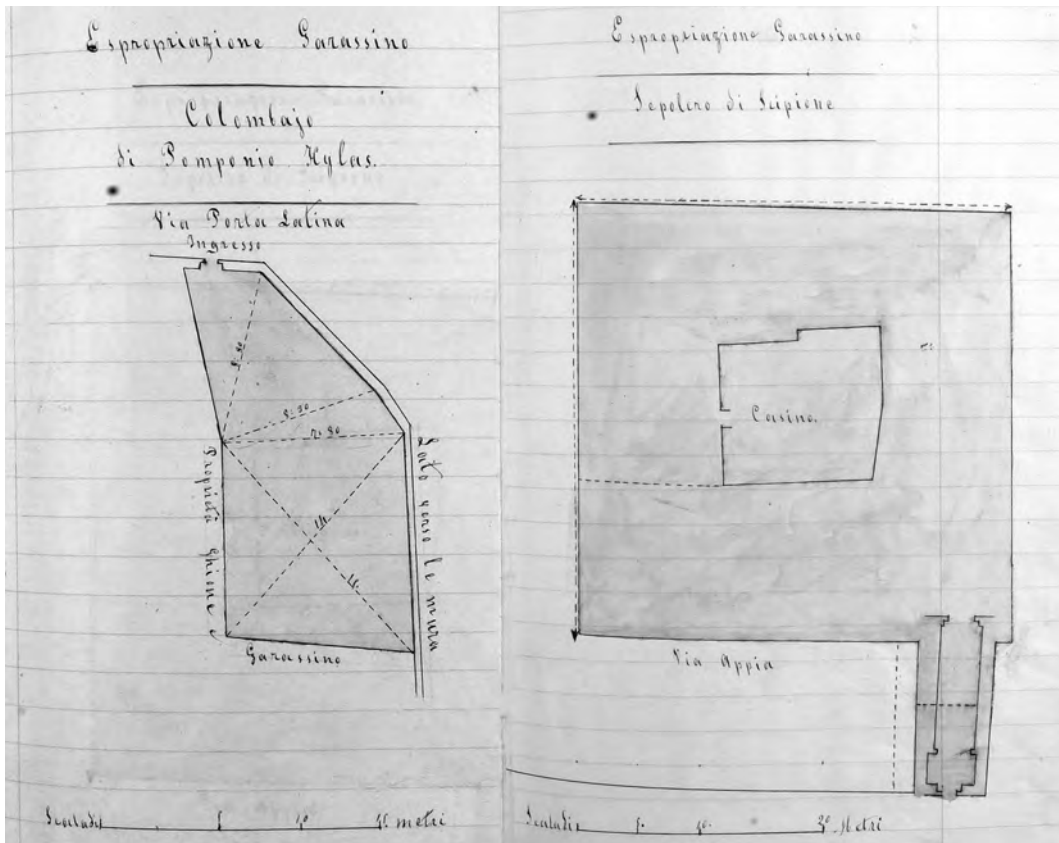 Espropriazione Garassino
Colombajo
di Pomponio Hylas.
Via Porta Latina
Ingresso
8:20
7:80
14
Proprietà Ghione
Lato verso le mura
Garassino
Scala di
5
10
metri
Espropriazione Garassino
Sepolcro di Scipione
Casino.
Via Appia
Scala di
5.
10.
20
Metri